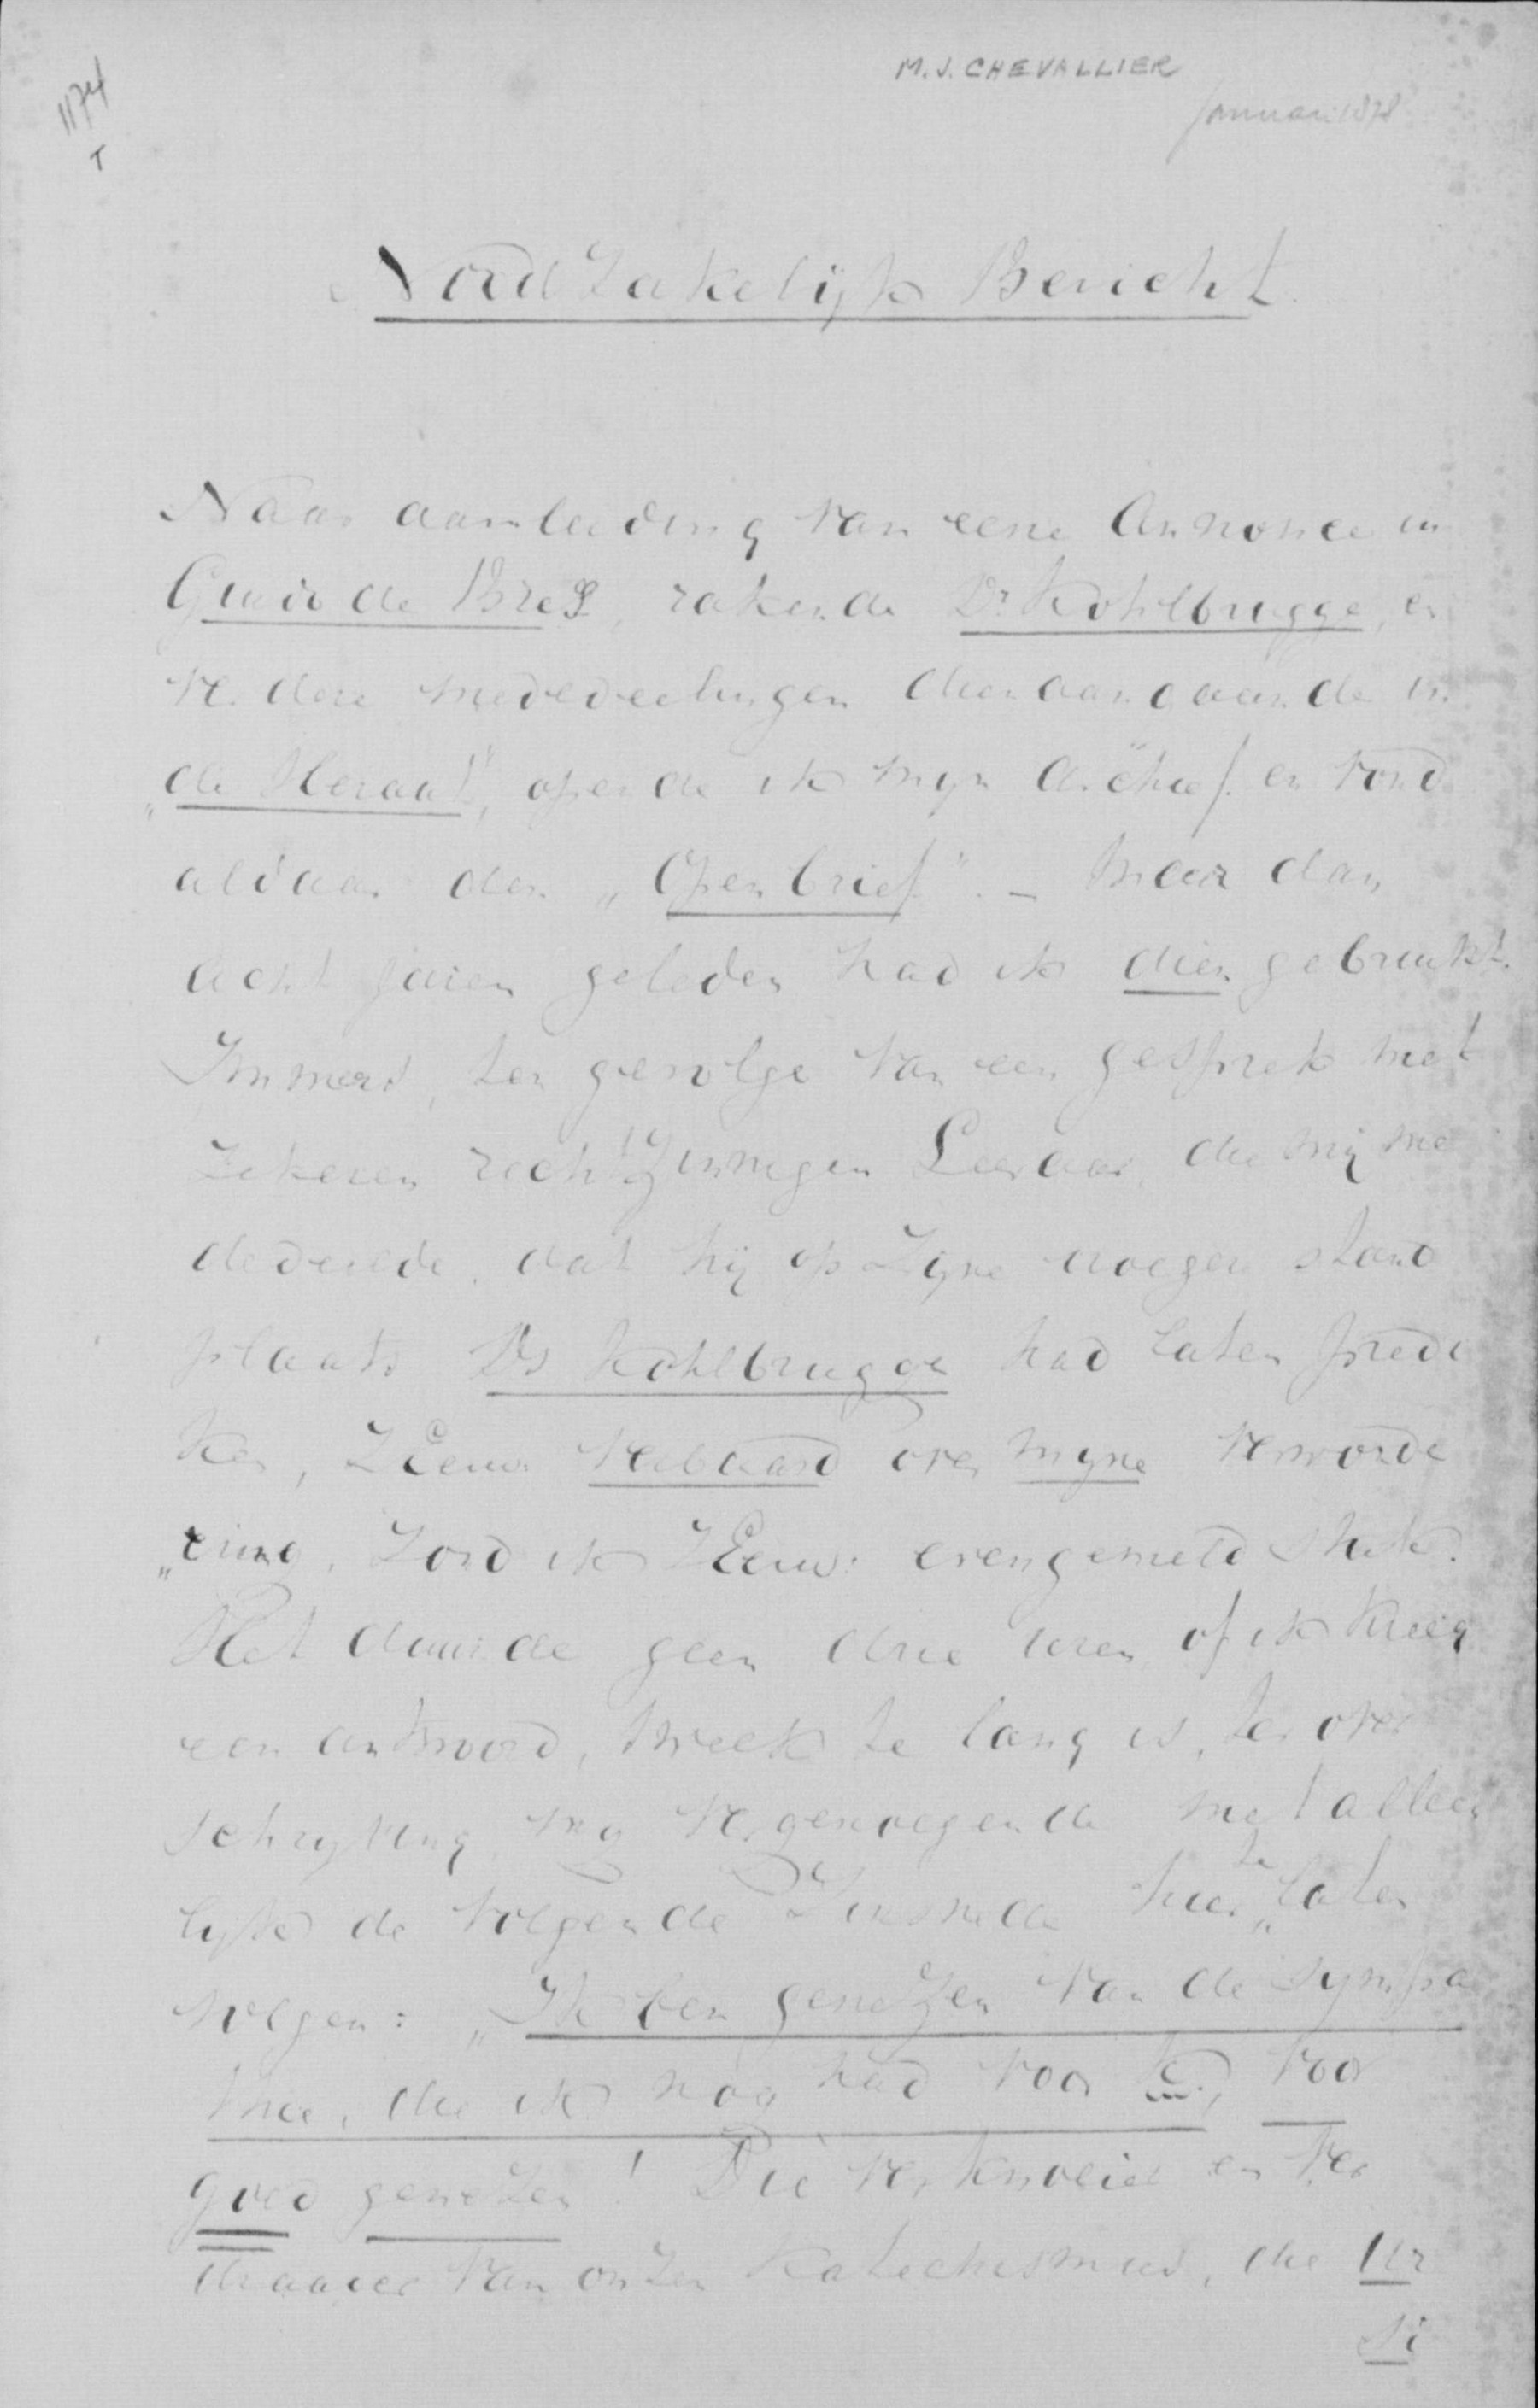 M. J. CHEVALLIER
Januari 1878
1174
T
Noodzakelijk Bericht.
Naar aanleiding van eene Annonce in
Guido de Bres, rakende Dr. Kohlbrugge, en
verdere mededeelingen dienaangaande in
"de Heraut", opende ik mijn Archief en vond
aldaar den "Open brief". – Meer dan
acht jaren geleden had ik dien gebruikt.
Immers, ten gevolge van een gesprek met
zekeren rechtzinnigen Leeraar, die mij me
dedeelde, dat hij op zijne vroegere stand
plaats Ds Kohlbrugge had laten predi
ken, ZEerw. verbaasd over mijne verwonde
"ring, zond ik ZEerw: evengemeld stuk.
Het duurde geen drie uren, of ik kreeg
een antwoord, hetwelk te lang is, ter over
schrijving, mij vergenoegende met alleen
lijk de volgende zinsnede hier te laten
volgen: "Ik ben genezen van de sympa
thie, die ik nog had voor K., voor
goed genezen! Die verknoeier en ver
draaier van onzen Katechismus, die Ur
si